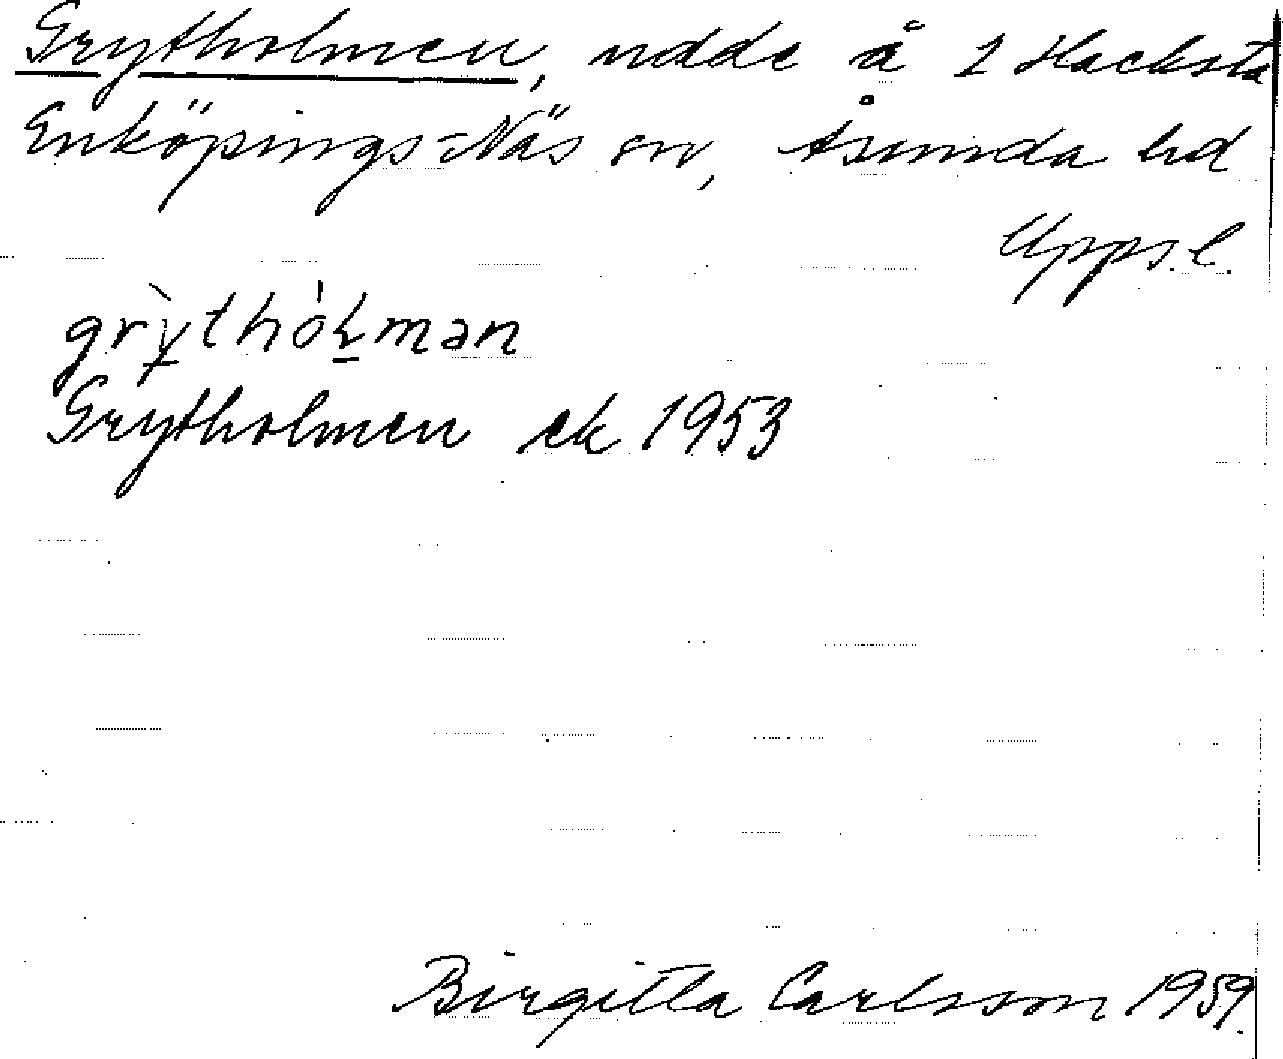 Grytholmen, udde å 1 Hacksta
Enköpings-Näs sn, Åsunda hd
Upps.l.
grỳthólmən
Grytholmen ek 1953
Birgitta Carlsson 1959.